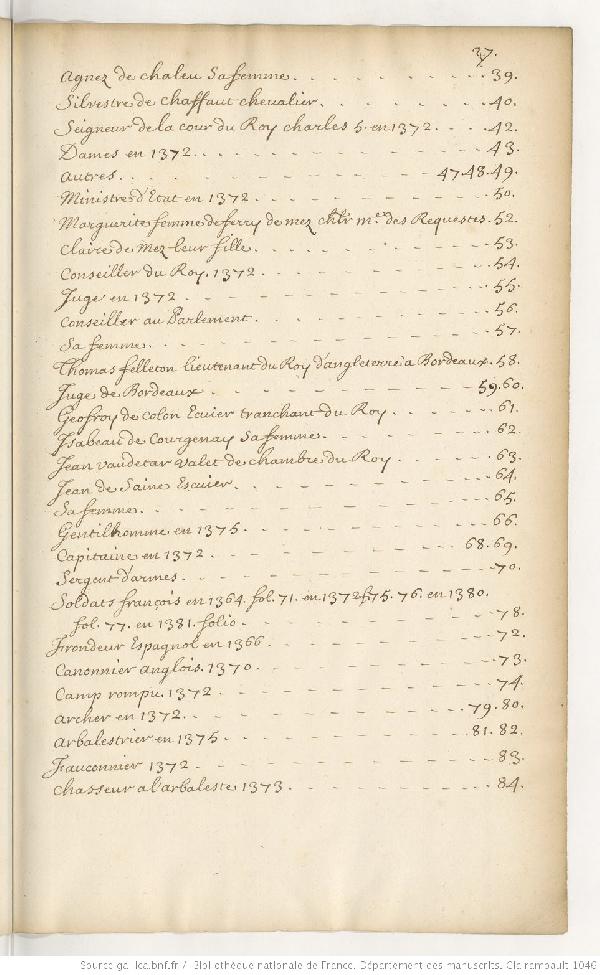 37.
Agnez de chaleu Sa femme. . . . . . . . . . 39.
Silvestre de chaffaut chevalier. . . . . . . . 40.
Seigneur de la cour du Roy charles 5. en 1372. . . . 42.
Dames en 1372. . . . . . . . . . 43.
autres. . . . . . . . . 47.48.49.
Ministre d'Etat en 1372. . . . . . . . . 50.
Marguerite femme de ferry de mez chlr. me. des Requestes. 52.
claire de mez leur fille. . . . . . . . . 53.
Conseiller du Roy. 1372. . . . . . . . . 54.
Juge en 1372. . . . . . . . . . 55.
conseiller au Parlement. . . . . . . . . 56.
Sa femme. . . . . . . . . . 57.
Thomas felleton Lieutenant du Roy d'angleterre a Bordeaux. 58.
Juge de Bordeaux. . . . . . . . . 59.60.
Geofroy de Colon Ecuier tranchant du Roy. . . . . . 61.
Isabeau de Courgenay Sa femme. . . . . . . . 62.
Jean vaudetar valet de chambre du Roy. . . . . . 63.
Jean de Saine Escuier. . . . . . . . . 64.
Sa femme. . . . . . . . . . 65.
Gentilhomme en 1375. . . . . . . . . 66.
Capitaine en 1372. . . . . . . . . 68.69.
Sergent d'armes. . . . . . . . . . 70.
Soldats françois en 1364. fol. 71. en 1372 f. 75. 76. en 1380.
fol. 77. en 1381. folio. . . . . . . . . 78.
Frondeur Espagnol en 1366. . . . . . . . 72.
Canonnier anglois. 1370. . . . . . . . . 73.
Camp rompu. 1372. . . . . . . . . 74.
archer en 1372. . . . . . . . . 79.80.
arbalestrier en 1375. . . . . . . . . 81.82.
Fauconnier 1372. . . . . . . . . 83.
chasseur a l'arbaleste 1373. . . . . . . . 84.
Source gallica.bnf.fr / Bibliothèque nationale de France. Département des manuscrits. Clairambault 1046